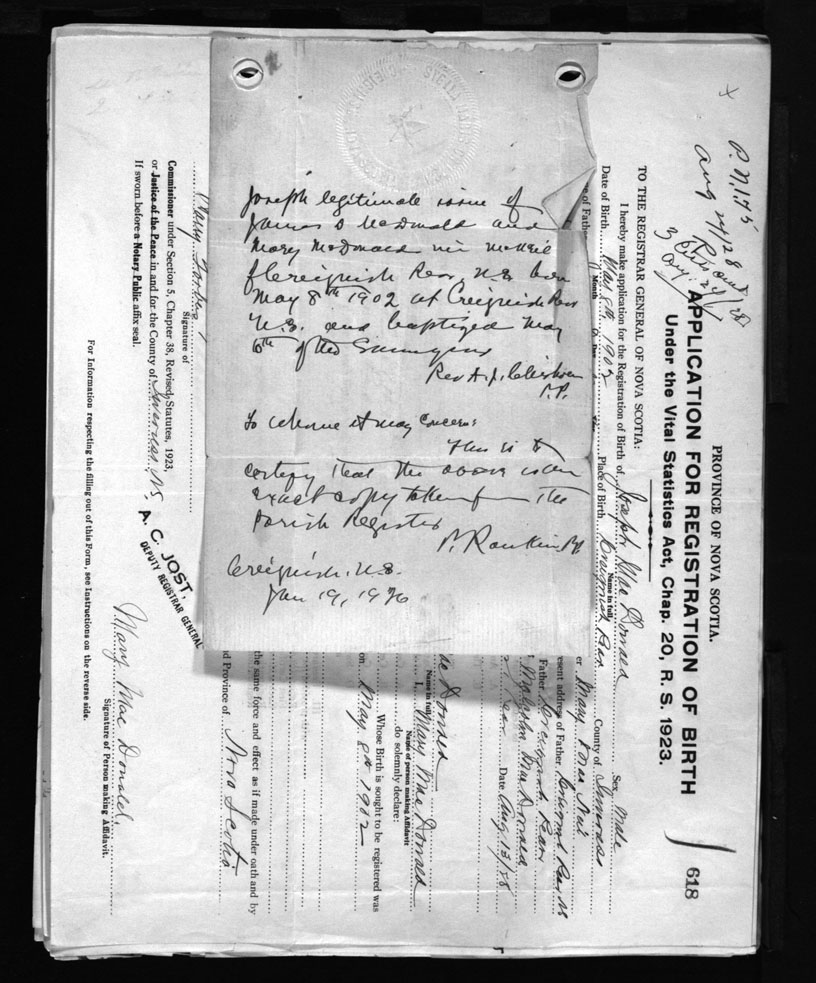 Joseph legitimate issue of
James D McDonald and
Mary McDonald née McNeil
of Creignish Rear, N.S. born
May 8th 1902 at Creignish Rear
N.S. and baptized May
of the
Rev A. J. Chisholm
P.P.
To whome it may concern:
This is to
certify that the above is an
exact copy taken from the
Parish Register
P. Rankin PP
Creignish. N.S.
Jan 19, 1926
618
PROVINCE OF NOVA SCOTIA.
APPLICATION FOR REGISTRATION OF BIRTH
Under the Vital Statistics Act, Chap. 20, R. S. 1923.
P.N. 145
Aug 24/28
TO THE REGISTRAR GENERAL OF NOVA SCOTIA:
I hereby make application for the Registration of Birth of Joseph Mac Donald Sex Male
Name in full
Date of Birth May 8th 1902 Place of Birth Creignish Rear County of Inverness
Month
e of Father er Mary
esent address of Father Creignish Rear NS
Father Creignish Rear
Mac Donald
Date Aug 13/28
Donald
Name in full
I, Mary Mac Donald
Name of person making Affidavit
do solemnly declare:
Whose Birth is sought to be registered was
on May 8th 1902
the same force and effect as if made under oath and by
d Province of Nova Scotia
Mary
Signature of
Commissioner under Section 5, Chapter 38, Revised Statutes, 1923,
or Justice of the Peace in and for the County of Inverness, NS
If sworn before a Notary Public affix seal.
A. C. JOST,
DEPUTY REGISTRAR GENERAL
Mary Mac Donald
Signature of Person making Affidavit.
For Information respecting the filling out of this Form, see Instructions on the reverse side.